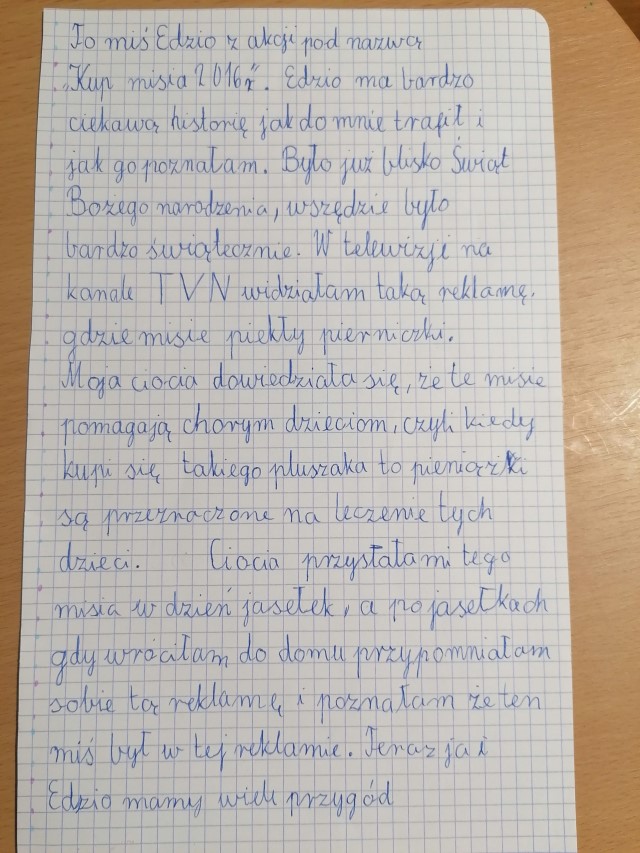 To miś Edzio z akcji pod nazwą
„Kup misia 2016r". Edzio ma bardzo
ciekawą historię jak do mnie trafił i
jak go poznałam. Było już blisko Świąt
Bożego narodzenia, wszędzie było
bardzo świątecznie. W telewizji na
kanale TVN widziałam taką reklamę.
gdzie misie piekły pierniczki.
Moja ciocia dowiedziała się, że te misie
pomagają chorym dzieciom, czyli kiedy
kupi się takiego pluszaka to pieniążki
są przeznaczone na leczenie tych
dzieci. Ciocia przysłała mi tego
misia w dzień jasełek, a po jasełkach
gdy wróciłam do domu przypomniałam
sobie tą reklamę i poznałam że ten
miś był w tej reklamie. Teraz ja i
Edzio mamy wiele przygód